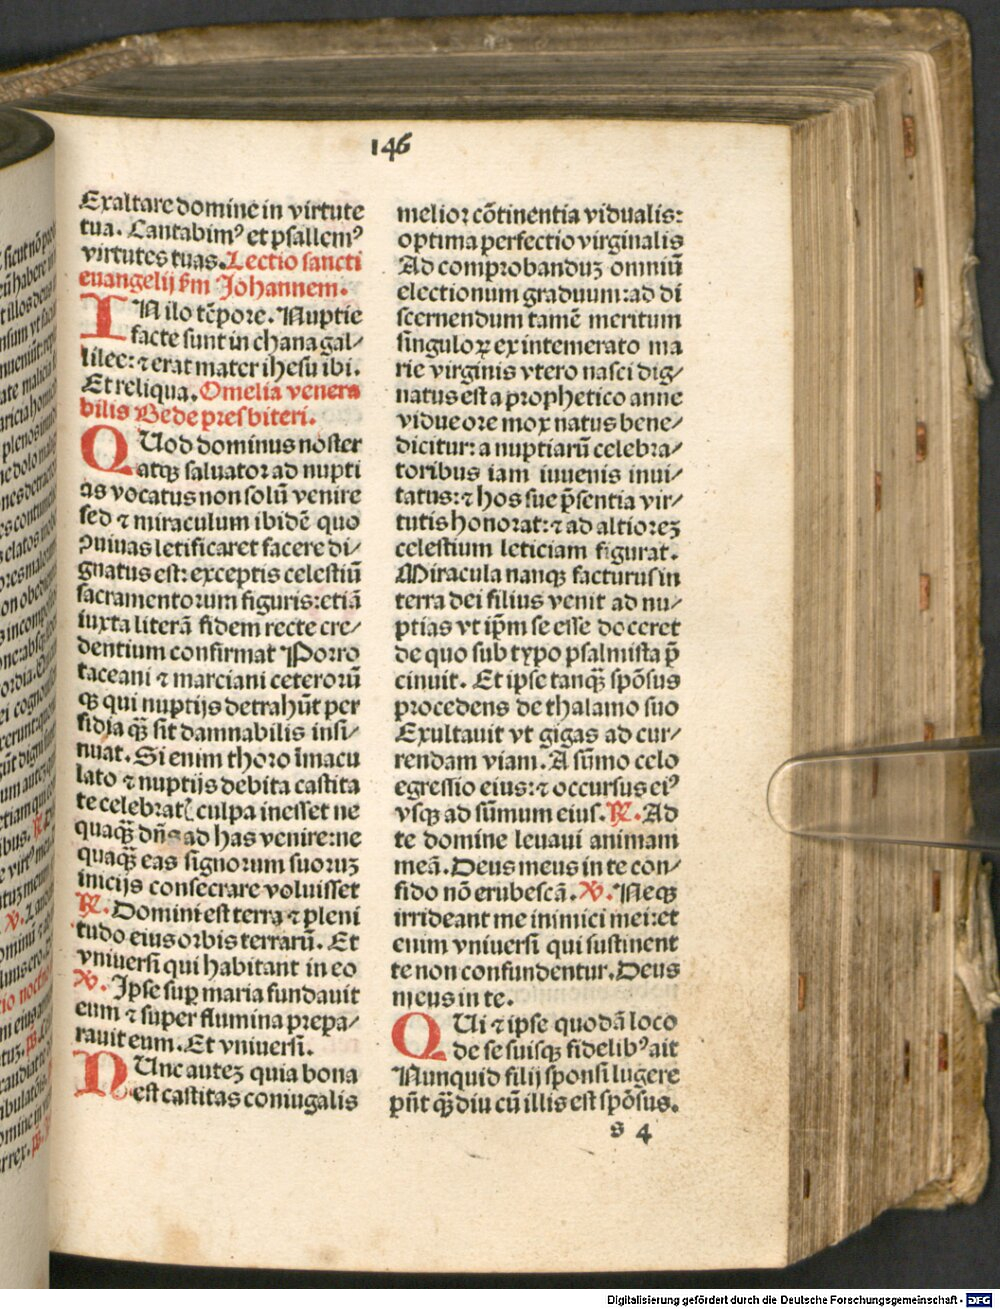 146
Exaltare domine in virtute
tua. Cantabimꝰ et psallemꝰ
virtutes tuas. Lectio sancti
euangelij ẜm Johannem.
IN ilo tẽpore. Nuptie
facte sunt in chana gal⸗
lilee: ⁊ erat mater ihesu ibi.
Et reliqua. Omelia venera
bilis Bede presbiteri.
QUod dominus noster
atqꝫ saluator ad nupti
as vocatus non solũ venire
sed ⁊ miraculum ibidẽ quo
ꝯuiuas letificaret facere di⸗
gnatus est: exceptis celestiũ
sacramentorum figuris: etiã
iuxta literã fidem recte cre⸗
dentium confirmat Porro
taceani ⁊ marciani ceterorũ
qꝫ qui nuptijs detrahũt per
fidia qꝫ̃ sit damnabilis insi⸗
nuat. Si enim thoro ĩmacu
lato ⁊ nuptijs debita castita
te celebratꝭ culpa inesset ne
quaqꝫ̃ dñs ad has venire: ne
quaqꝫ̃ eas signorum suoruꝫ
inicijs consecrare voluisset
℟. Domini est terra ⁊ pleni
tudo eius orbis terrarũ. Et
vniuersi qui habitant in eo
℣. Ipse suꝑ maria fundauit
eum ⁊ super flumina prepa⸗
rauit eum. Et vniuersi.
NUnc auteꝫ quia bona
est castitas coniugalis
melior cõtinentia vidualis:
optima perfectio virginalis
Ad comprobanduꝫ omniũ
electionum graduum: ad di
scernendum tamẽ meritum
singuloꝝ ex intemerato ma
rie virginis vtero nasci dig⸗
natus est a prophetico anne
vidue ore mox natus bene⸗
dicitur: a nuptiarũ celebra⸗
toribus iam iuuenis inui⸗
tatus: ⁊ hos sue p̃sentia vir⸗
tutis honorat: ⁊ ad altioreꝫ
celestium leticiam figurat.
Miracula nanqꝫ facturus in
terra dei filius venit ad nu⸗
ptias vt ip̃m se esse doceret
de quo sub typo psalmista p̃
cinuit. Et ipse tanqꝫ̃ spõsus
procedens de thalamo suo
Exultauit vt gigas ad cur⸗
rendam viam. A sũmo celo
egressio eius: ⁊ occursus eiꝰ
vsqꝫ ad sũmum eius. ℟. Ad
te domine leuaui animam
meã. Deus meus in te con⸗
fido nõ erubescã. ℣. Neqꝫ
irrideant me inimici mei: et
enim vniuersi qui sustinent
te non confundentur. Deus
meus in te.
QUi ⁊ ipse quodã loco
de se suisqꝫ fidelibꝰ ait
Nunquid filij sponsi lugere
pñt qꝫ̃diu cũ illis est spõsus.
s 4
Digitalisierung gefördert durch die Deutsche Forschungsgemeinschaft - DFG